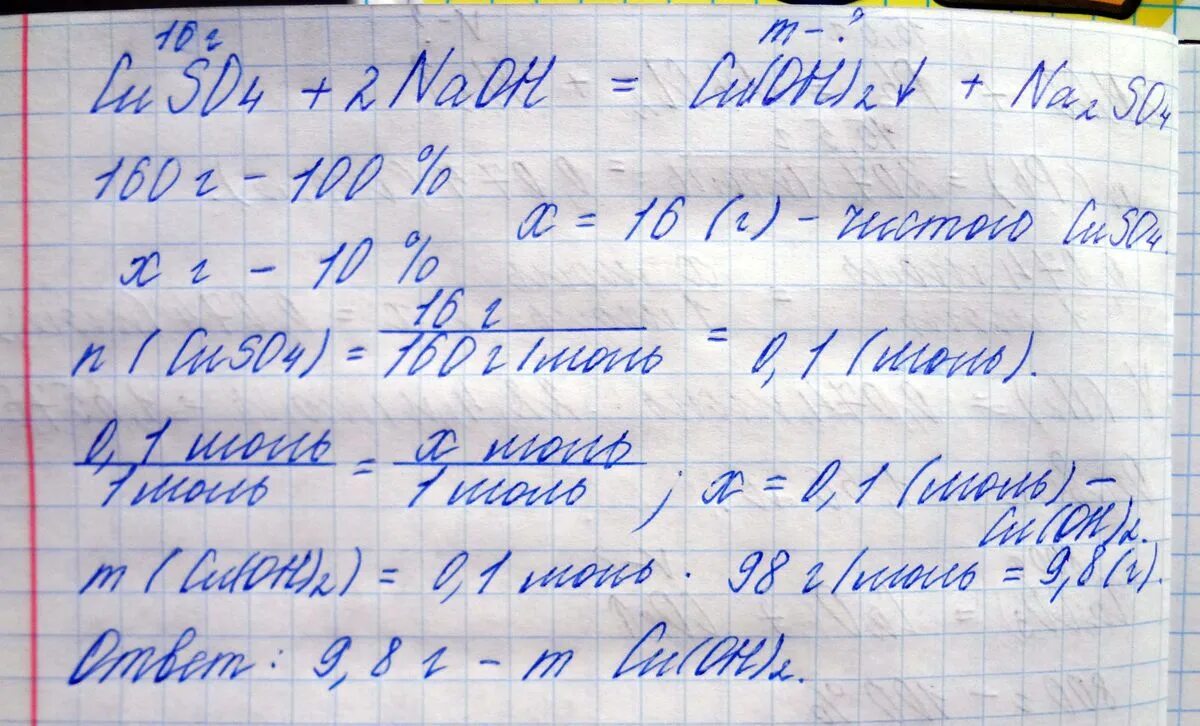 16 г
m - ?
CuSO4 + 2NaOH = Cu(OH)2↓ + Na2SO4
160 г - 100 %
x г - 10 %
x = 16 (г) - чистого CuSO4.
n (CuSO4) = 16 г / 160 г/моль = 0,1 (моль).
0,1 моль / 1 моль = x моль / 1 моль ; x = 0,1 (моль) -
Cu(OH)2.
m (Cu(OH)2) = 0,1 моль · 98 г/моль = 9,8 (г).
Ответ: 9,8 г - m Cu(OH)2.